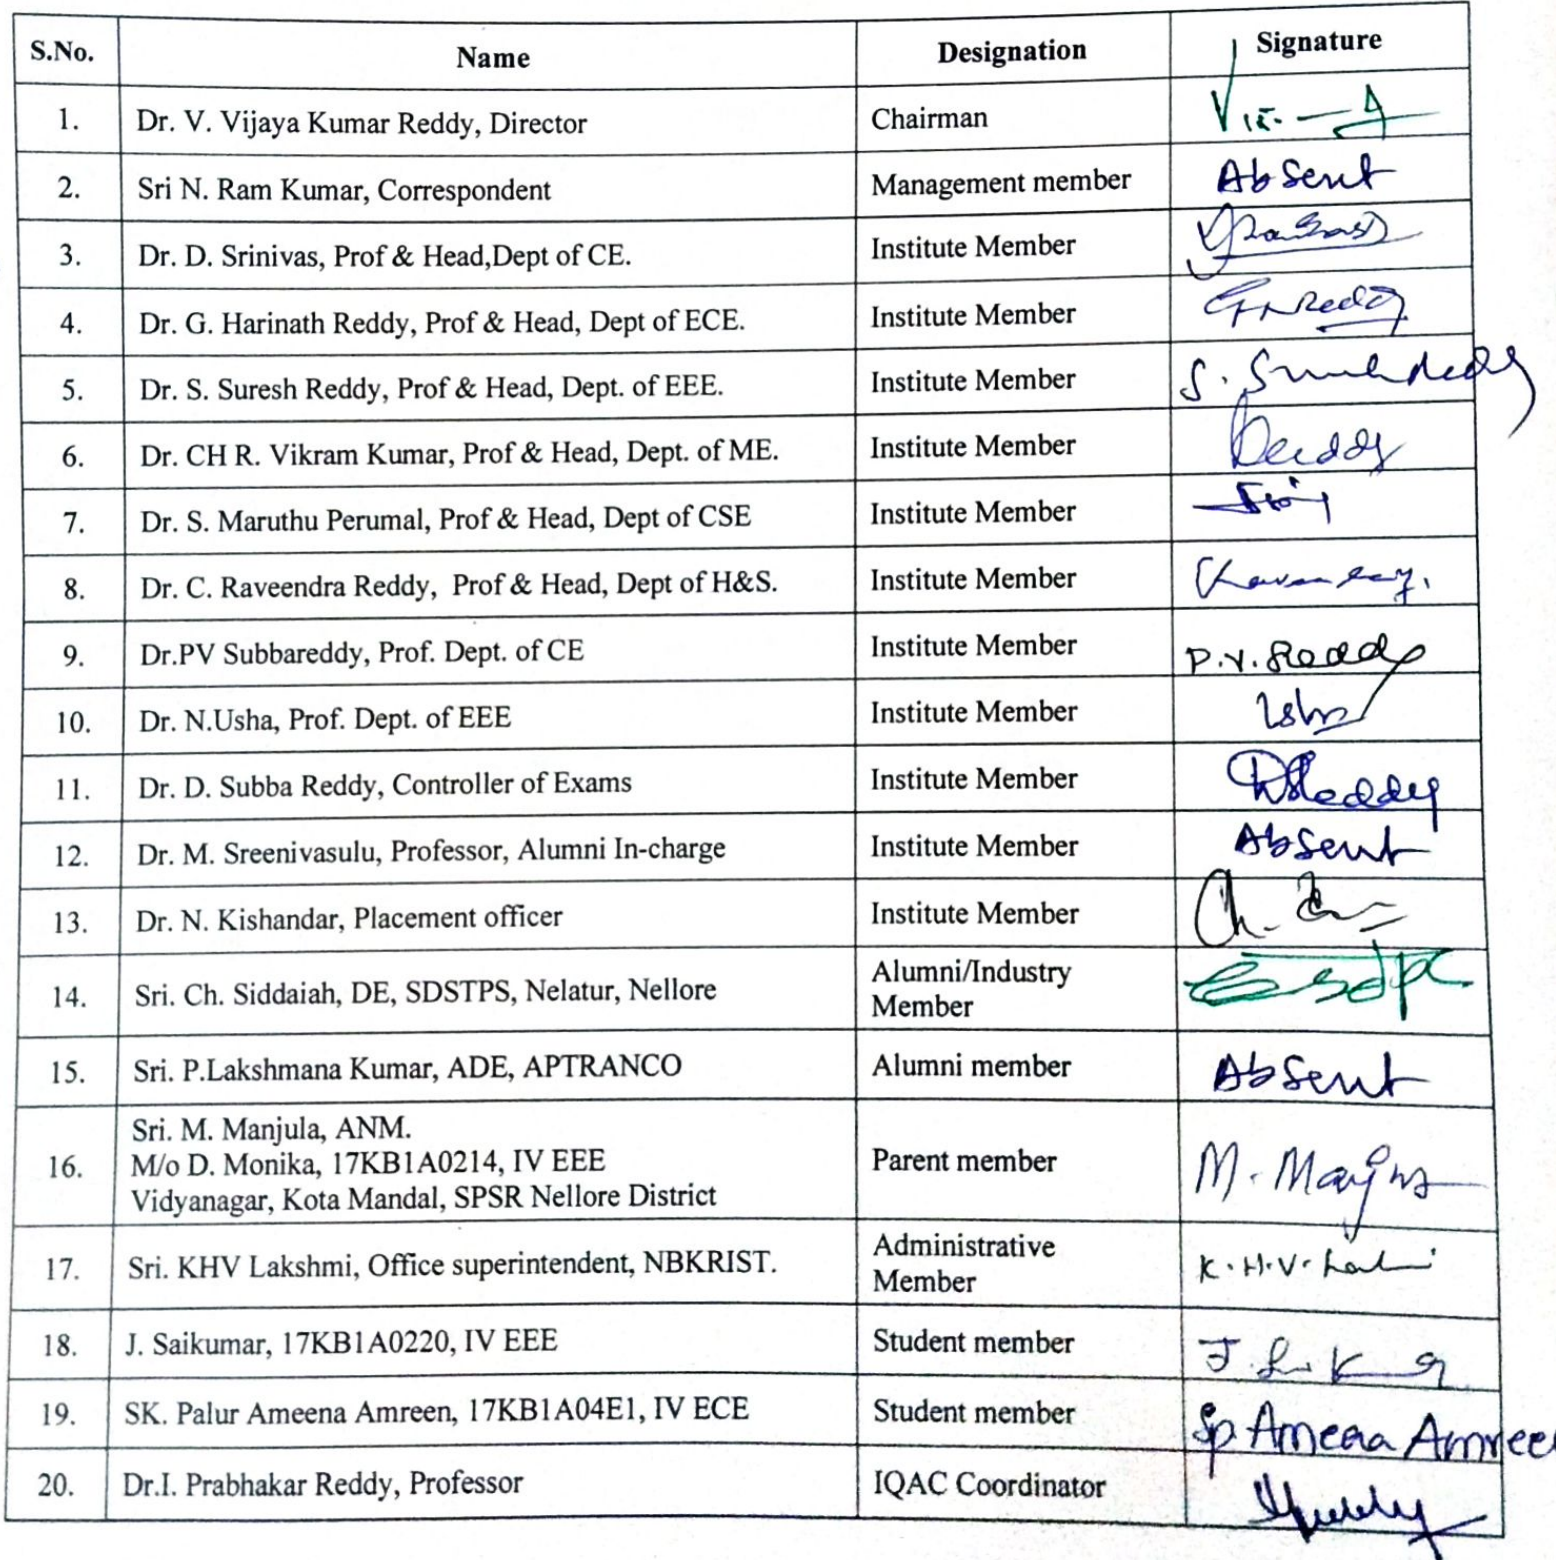 S.No. Name Designation Signature
1. Dr. V. Vijaya Kumar Reddy, Director Chairman
2. Sri N. Ram Kumar, Correspondent Management member Absent
3. Dr. D. Srinivas, Prof & Head,Dept of CE. Institute Member
4. Dr. G. Harinath Reddy, Prof & Head, Dept of ECE. Institute Member GNReddy
5. Dr. S. Suresh Reddy, Prof & Head, Dept. of EEE. Institute Member S. Suresh Reddy
6. Dr. CH R. Vikram Kumar, Prof & Head, Dept. of ME. Institute Member
7. Dr. S. Maruthu Perumal, Prof & Head, Dept of CSE Institute Member
8. Dr. C. Raveendra Reddy, Prof & Head, Dept of H&S. Institute Member
9. Dr.PV Subbareddy, Prof. Dept. of CE Institute Member P.V. Reddy
10. Dr. N.Usha, Prof. Dept. of EEE Institute Member Usha
11. Dr. D. Subba Reddy, Controller of Exams Institute Member DSReddy
12. Dr. M. Sreenivasulu, Professor, Alumni In-charge Institute Member Absent
13. Dr. N. Kishandar, Placement officer Institute Member
14. Sri. Ch. Siddaiah, DE, SDSTPS, Nelatur, Nellore Alumni/Industry
Member
15. Sri. P.Lakshmana Kumar, ADE, APTRANCO Alumni member Absent
Sri. M. Manjula, ANM.
16. M/o D. Monika, 17KB1A0214, IV EEE Parent member M. Manjula
Vidyanagar, Kota Mandal, SPSR Nellore District
17. Sri. KHV Lakshmi, Office superintendent, NBKRIST. Administrative
Member K.H.V. Lakshmi
18. J. Saikumar, 17KB1A0220, IV EEE Student member
19. SK. Palur Ameena Amreen, 17KB1A04E1, IV ECE Student member Sp Ameena Amreen
20. Dr.I. Prabhakar Reddy, Professor IQAC Coordinator